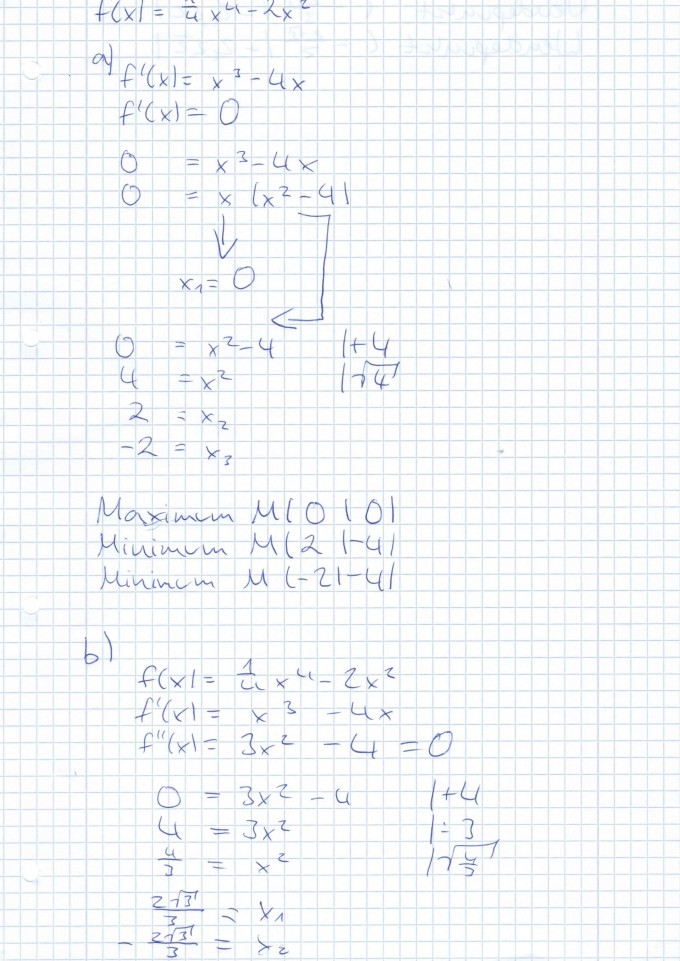 f(x) = 1/4 x⁴ - 2x²
a)
f'(x) = x³ - 4x
f'(x) = 0
0 = x³ - 4x
0 = x (x² - 4)
x₁ = 0
0 = x² - 4 |+4
4 = x² |√4
2 = x₂
-2 = x₃
Maximum M(0|0)
Minimum M(2|-4)
Minimum M(-2|-4)
b)
f(x) = 1/4 x⁴ - 2x²
f'(x) = x³ - 4x
f''(x) = 3x² - 4 = 0
0 = 3x² - 4 |+4
4 = 3x² |÷3
4/3 = x² |√4/3
2√3/3 = x₁
- 2√3/3 = x₂